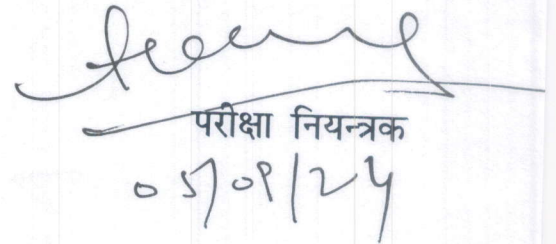 परीक्षा नियन्त्रक
05/09/24